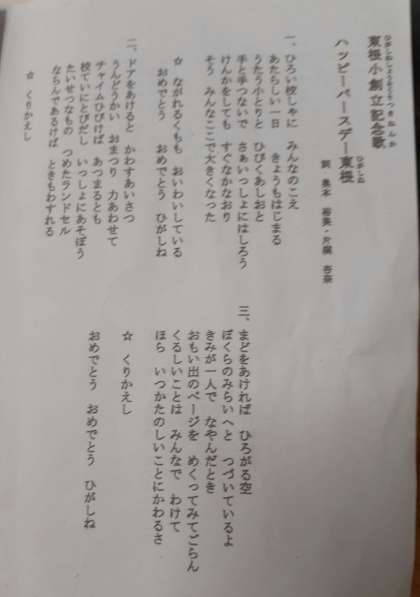 東根小創立記念歌
ひがしねしょうそうりつきねんか
ハッピーバースデー東根
ひがしね
詞
一、ひろい校しゃに　みんなのこえ
あたらしい一日　きょうもはじまる
うたう小とりと　ひびくあしおと
手と手つないで　さぁいっしょにはしろう
けんかをしても　すぐなかなおり
そう　みんなここで大きくなった
☆　ながれるくもも　おいわいしている
おめでとう　おめでとう　ひがしね
二、ドアをあけると　かわすあいさつ
うんどうかい　おまつり　力あわせて
チャイムひびけば　あつまるとも
校ていにとびだし　いっしょにあそぼう
たいせつなもの　つめたランドセル
ならんであるけば　ときもわすれる
☆　くりかえし
三、まどをあければ　ひろがる空
ぼくらのみらいへと　つづいているよ
きみが一人で　なやんだとき
おもい出のページを　めくってみてごらん
くるしいことは　みんなで　わけて
ほら　いつかたのしいことにかわるさ
☆　くりかえし
おめでとう　おめでとう　ひがしね